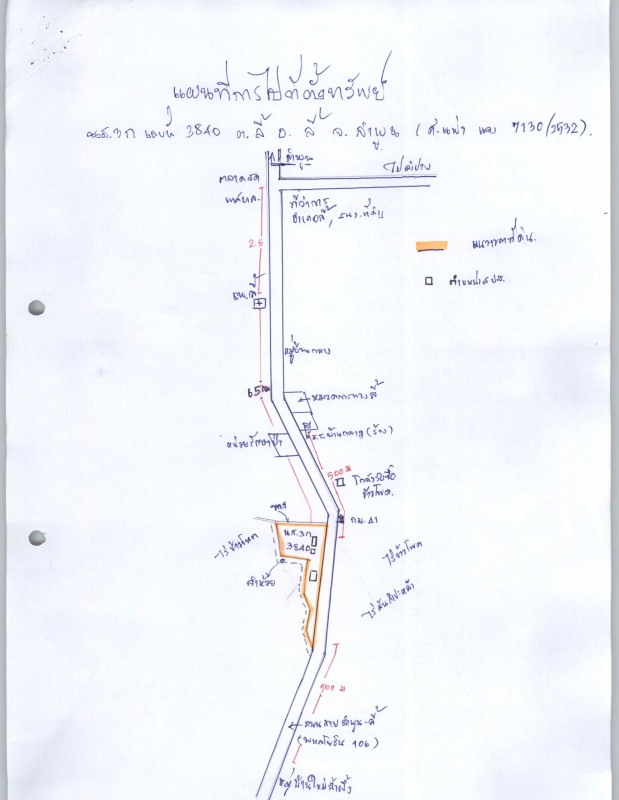 แผนที่การไปที่ตั้งทรัพย์
น.ส.3ก เลขที่ 3840 ต.ลี้ อ.ลี้ จ.ลำพูน ( 7130/2532).
ลำพูน
ไปลำปาง
ตลาดสด
เทศบาล
ที่ว่าการ
อำเภอลี้,
2.5
แนวเขตที่ดิน.
รพ.ลี้
หมู่บ้านกลาง
6.5 กม
หมวดการทางลี้
ร.ร.บ้านกลาง (ร้าง)
500 ม
โกดังรับซื้อ
ข้าวโพด.
ทาง
กม. 41
น.ส.3ก
3840
ไร่ข้าวโพด
ไร่ข้าวโพด
ลำห้วย
ไร่มันสำปะหลัง
500 ม
ถนนสายลำพูน-ลี้
(พหลโยธิน 106)